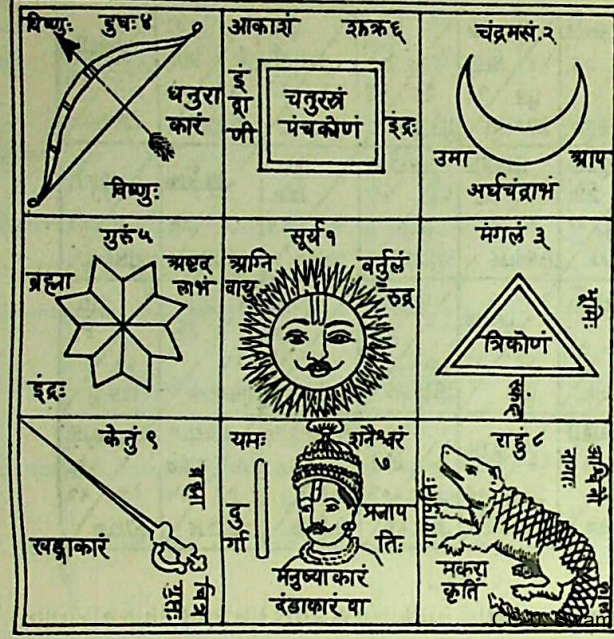 विष्णुः बुधः४
धनुरा
कारं
विष्णुः
आकाशं शुक्र६
इंद्राणी
चतुरस्रं
पंचकोणं
इंद्रः
चंद्रमसं.२
उमा आप
अर्धचंद्राभं
गुरुं५
ब्रह्मा
अष्टद
लाभं
इंद्रः
सूर्य१
अग्नि वर्तुलं
वायु रुद्र
मंगलं ३
भूमिः
त्रिकोणं
स्कंद
केतुं ९
ब्रह्मा
खड्गाकारं
चित्र
गुप्तः
यमः शनैश्वरं
७
दुर्गा
प्रजाप
तिः
मनुष्याकारं
दंडाकारं वा
राहुं८
गणपतिः
मकरा
कृतिं